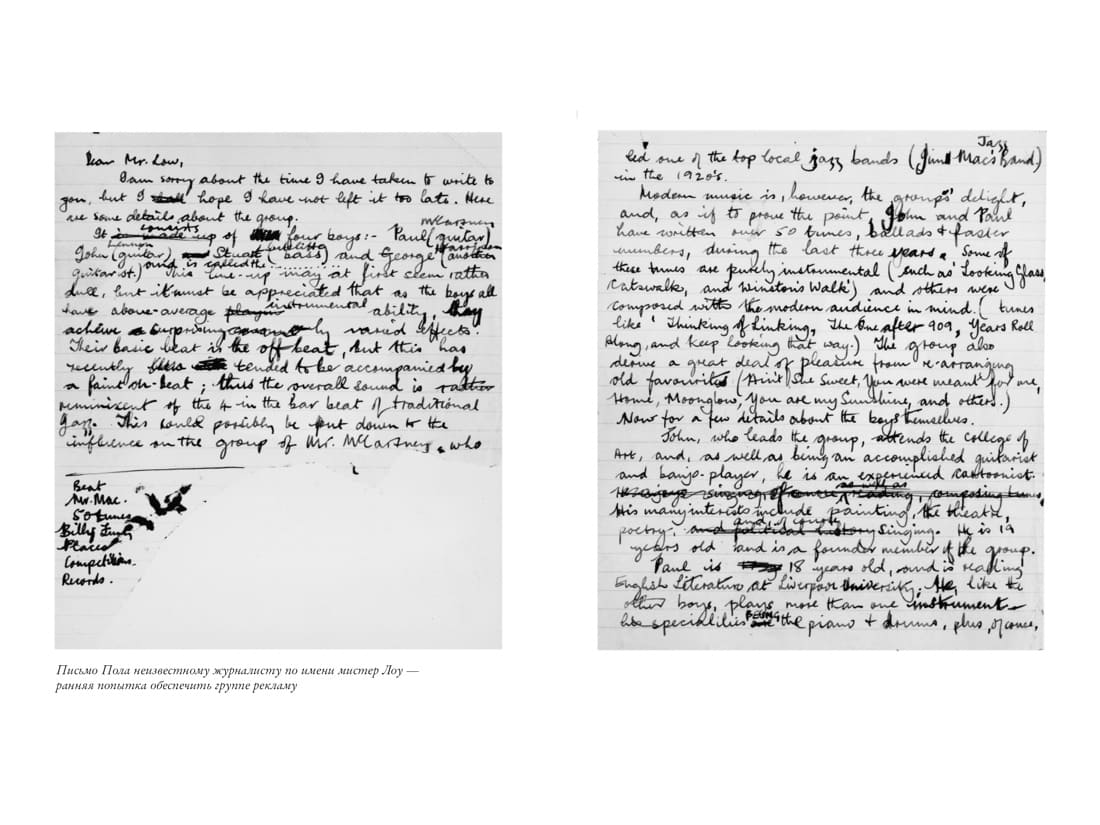 Dear Mr. Low,
I am sorry about the time I have taken to write to
you, but I hope I have not left it too late. Here
are some details about the group.
McCartney
consists
It is made up of four boys:- Paul (guitar)
Lennon Sutcliffe Harrison
John (guitar) Stuart (bass) and George (another
guitarist.) and is called the . . . .
This line-up may at first seem rather
dull, but it must be appreciated that as the boys all
instrumental
have above-average playing ability, they
achieve a surprisingly varied effects.
Their basic beat is the off beat, but this has
recently tended to be accompanied by
a faint on-beat; thus the overall sound is rather
reminiscent of the 4 in the bar beat of traditional
Jazz. This could possibly be put down to the
influence on the group of Mr. McCartney, who
Beat
Mr. Mac.
50 tunes
Billy Fury
Places
Competitions.
Records.
Jazz
led one of the top local jazz bands (Jim Mac's Band)
in the 1920's.
Modern music is, however, the group's delight,
and, as if to prove the point, John and Paul
have written over 50 tunes, ballads + faster
numbers, during the last three years. Some of
these tunes are purely instrumental (such as 'Looking Glass,
Catswalk, and Winston's Walk') and others were
composed with the modern audience in mind. (tunes
like 'Thinking of Linking, The One after 909, Years Roll
Along, and Keep looking that way.) The group also
derive a great deal of pleasure from re-arranging
old favourites (Ain't She Sweet, You were meant for me,
Home, Moonglow, You are my Sunshine, and others.)
Now for a few details about the boys themselves.
John, who leads the group, attends the college of
Art, and, as well as being an accomplished guitarist
and banjo-player, he is an experienced cartoonist.
as well as
He enjoys singing, of course reading, composing tunes,
His many interests include painting, the theatre,
and, of course,
poetry, and political history singing. He is 19
years old and is a founder member of the group.
Paul is 18 years old, and is reading
English Literature at Liverpool University. He, like the
other boys, plays more than one instrument –
BEING
his specialities are the piano + drums, plus, of course,
Письмо Пола неизвестному журналисту по имени мистер Лоу —
ранняя попытка обеспечить группе рекламу